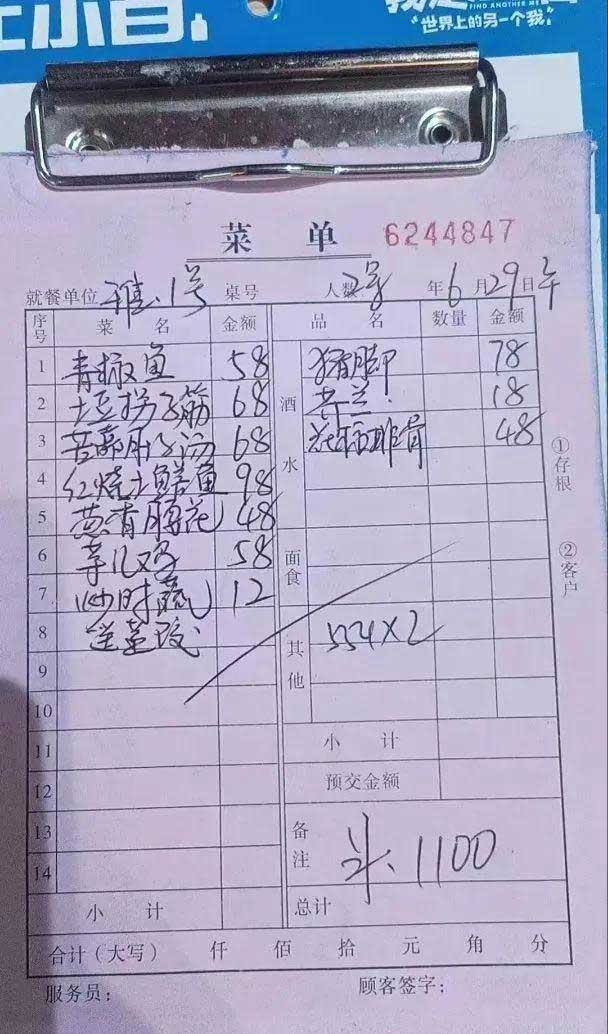 FIND ANOTHER ME
“世界上的另一个我”
菜 单
6244847
就餐单位 雅1号 桌号 人数 2号 年6月29日午
序号 菜 名 金额 品 名 数量 金额
1 青椒鱼 58 酒水 猪脚 78
2 土豆拐子筋 68 18
3 68 花福排骨 48
4 红烧土鳝鱼 98
5 葱香腰花 48
6 58 面食
7 炒时蔬 12
8 其他 554×2
9
10
11 小 计
12 预交金额
13 备注 1100
14
小 计 总计
合计（大写） 仟 佰 拾 元 角 分
服务员： 顾客签字：
①存根
②客户